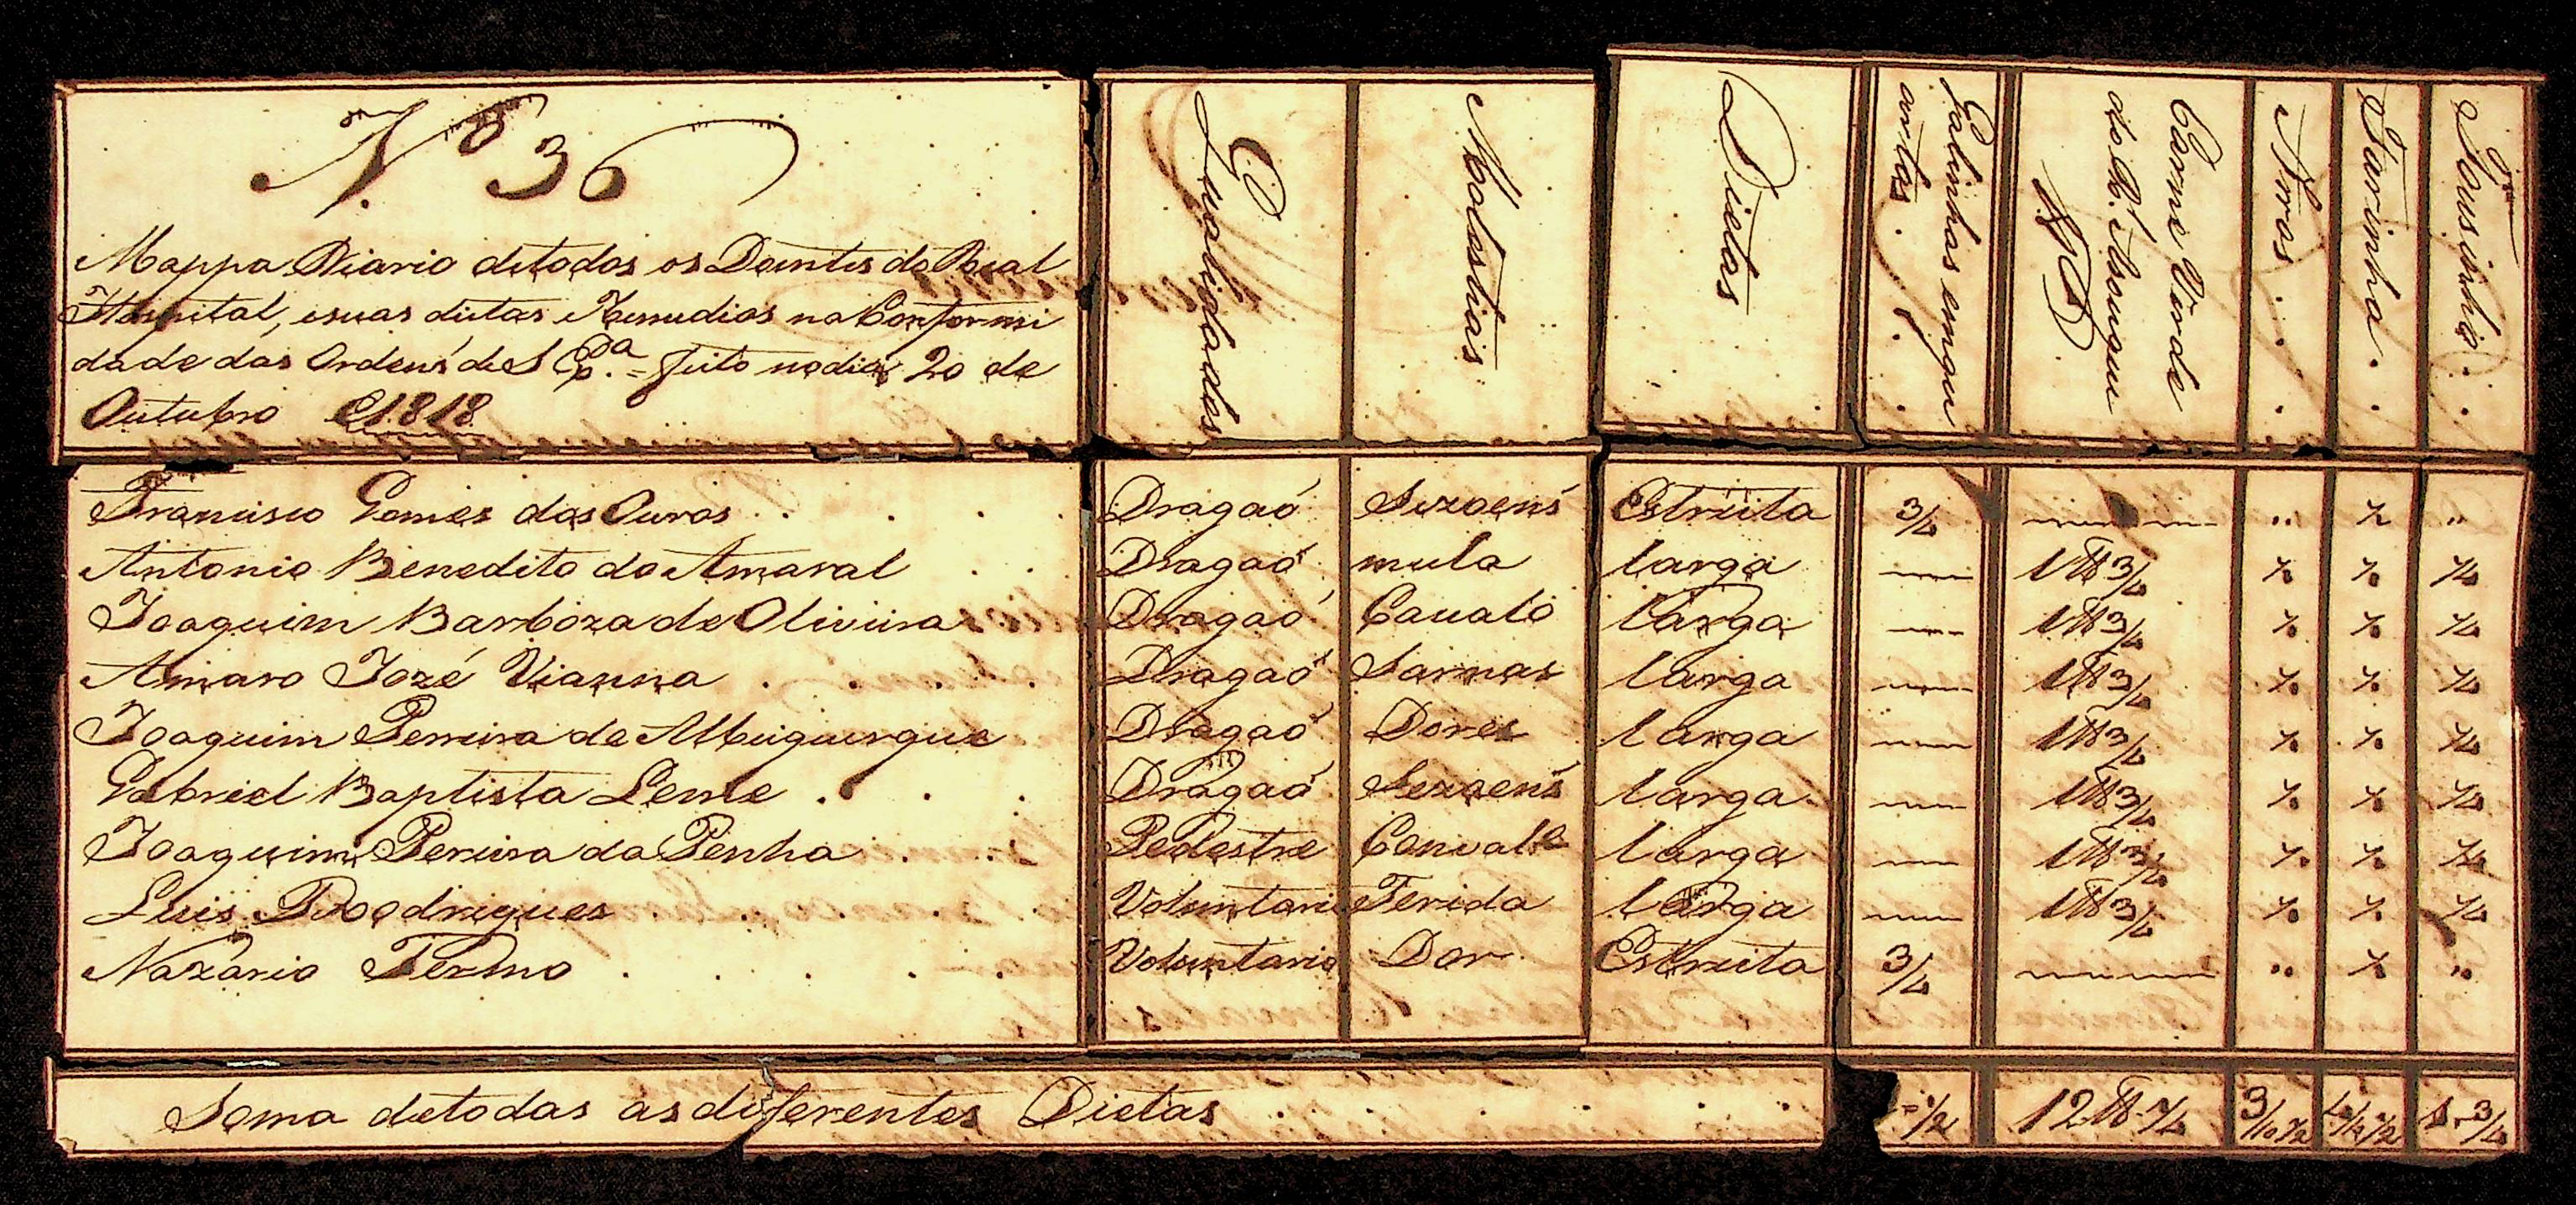 Nº 36
Mappa Diario detodos os Doentes do Real
Hospital, esuas dietas eRemedios na Conformi
dade das Ordens de S Exª. = feito nodia 20 de
Outubro 1818
Qualidades
Molestias
Dietas
Galinhas emqu
artos
Carne Verde
do R. Asougue
Arros
Farinha
Tousinho
Francisco Gomes dos Ouros Dragaõ Sezoens Estreita 3/4 " "
Antonio Benedito do Amaral Dragaõ mula larga 1 ℔ 3/4 1/4
Joaquim Barboza de Oliveira Dragaõ Cavalo larga 1 ℔ 3/4 1/4
Amaro Jozé Vianna Dragaõ Sarnas larga 1 ℔ 3/4 1/4
Joaquim Ferreira de Albuquerque Dragaõ Dores larga 1 ℔ 3/4 1/4
Gabriel Baptista Leme Dragaõ Sezoens larga 1 ℔ 3/4 1/4
Joaquim Pereira da Penha Pedestre larga 1 ℔ 3/4 1/4
Luis Roodrigues Voluntario Ferida larga 1 ℔ 3/4 1/4
Nazario Voluntario Dor Estreita 3/4 " "
Soma detodas as diferentes Dietas 1/2 12 ℔ 1/4 1 3/4